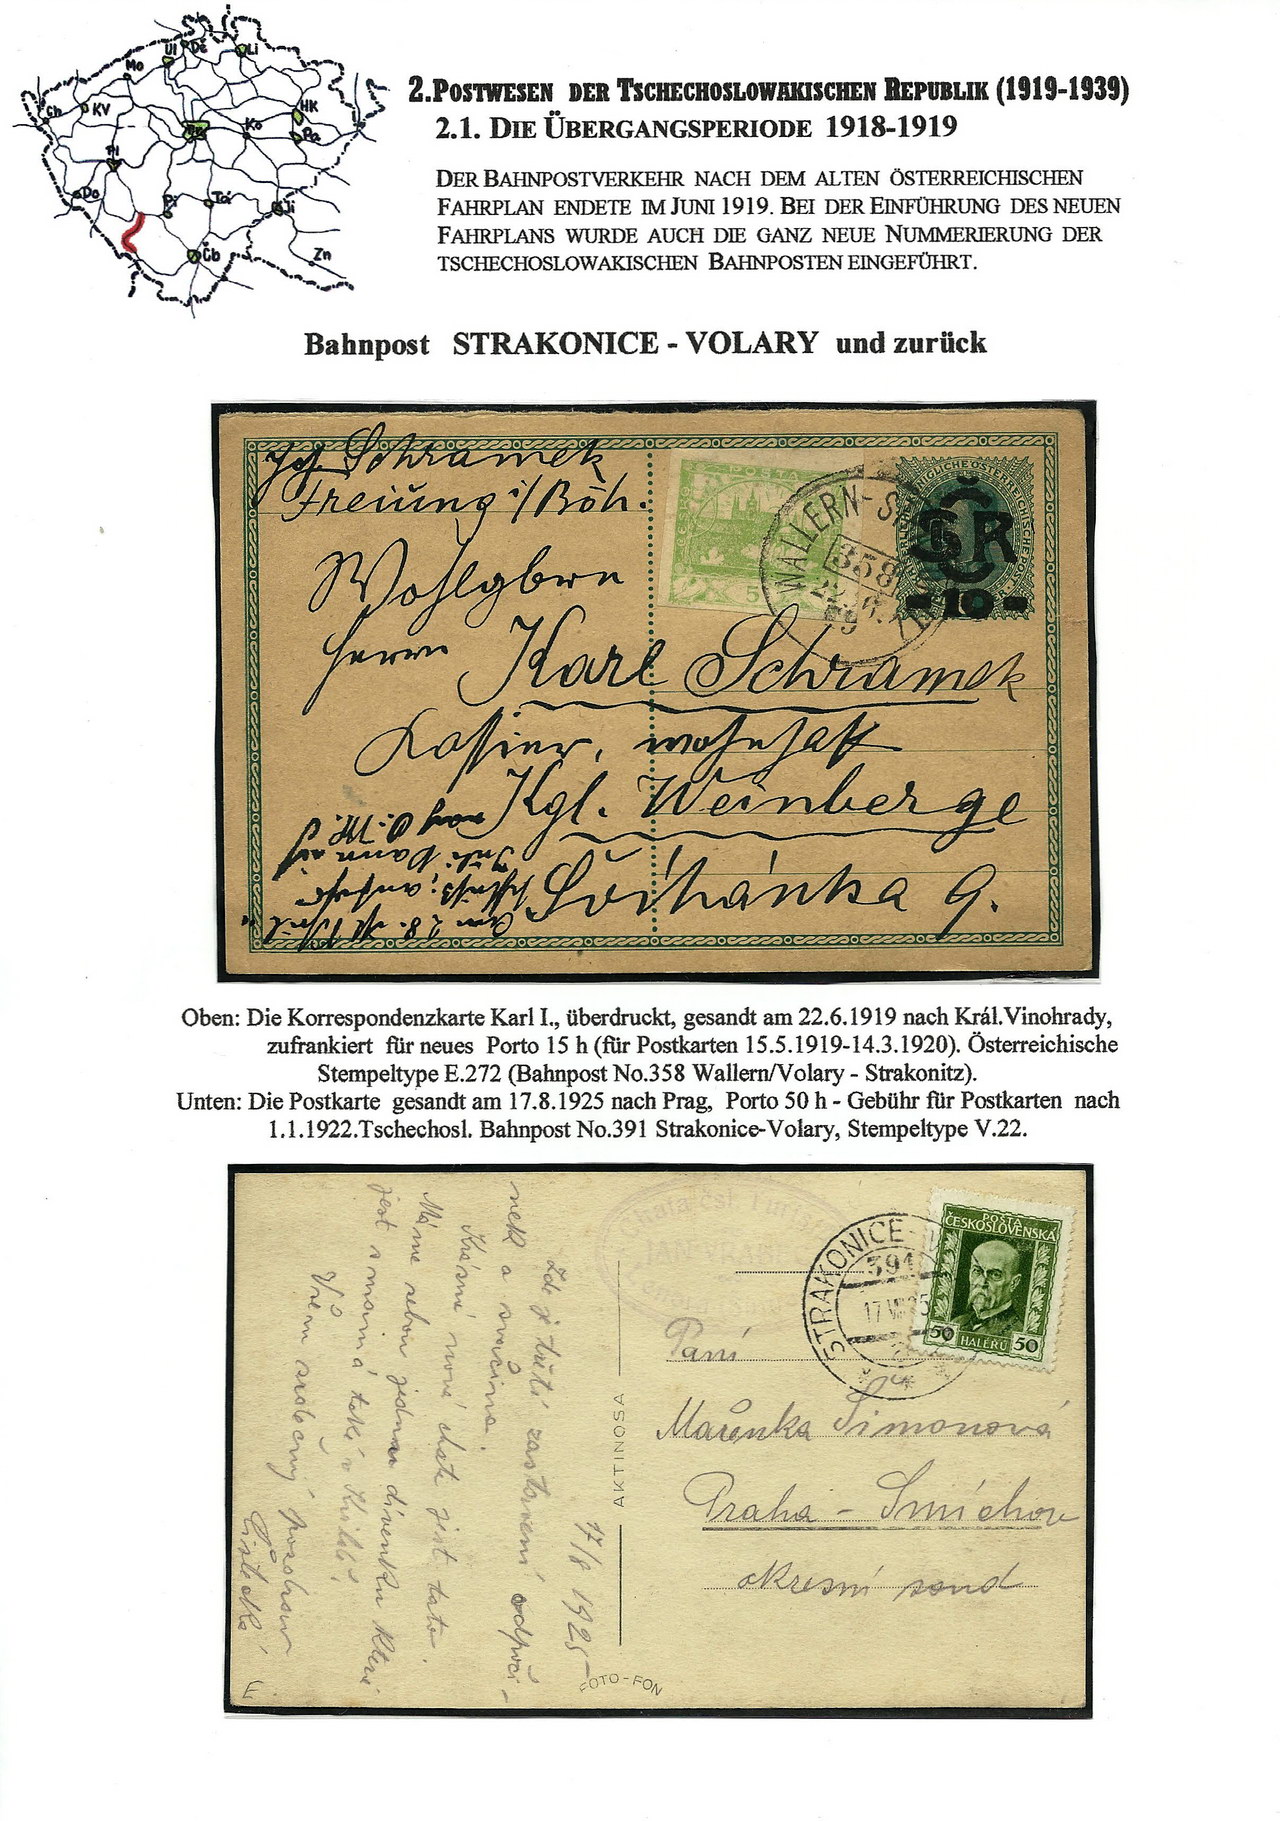 Ch
KV
Mo
Ul
Dě
Li
HK
Pa
Ko
Pr
Pl
Do
Pí
Tá
Ji
Čb
Zn
2.POSTWESEN DER TSCHECHOSLOWAKISCHEN REPUBLIK (1919-1939)
2.1. DIE ÜBERGANGSPERIODE 1918-1919
DER BAHNPOSTVERKEHR NACH DEM ALTEN ÖSTERREICHISCHEN
FAHRPLAN ENDETE IM JUNI 1919. BEI DER EINFÜHRUNG DES NEUEN
FAHRPLANS WURDE AUCH DIE GANZ NEUE NUMMERIERUNG DER
TSCHECHOSLOWAKISCHEN BAHNPOSTEN EINGEFÜHRT.
Bahnpost STRAKONICE - VOLARY und zurück
Schramek
Freiung i/Böh.
POSTA
ČESKO
5
WALLERN-S
358
22. 6.
19
ČSR
- 10 -
Wohlgbrn
Herrn Karl Schramek
Kassier, wohnhaft
Kgl. Weinberge
9.
Oben: Die Korrespondenzkarte Karl I., überdruckt, gesandt am 22.6.1919 nach Král.Vinohrady,
zufrankiert für neues Porto 15 h (für Postkarten 15.5.1919-14.3.1920). Österreichische
Stempeltype E.272 (Bahnpost No.358 Wallern/Volary - Strakonitz).
Unten: Die Postkarte gesandt am 17.8.1925 nach Prag, Porto 50 h - Gebühr für Postkarten nach
1.1.1922.Tschechosl. Bahnpost No.391 Strakonice-Volary, Stempeltype V.22.
17/8 1925
Zde je třetí zastavení odpoči-
nek a svačina.
Krásné nové chatě jest tato.
Máme sebou jednu dívenku které
jest s mamá také v
Vřem srdečný pozdrav
AKTINOSA
FOTO-FON
STRAKONICE-V
391
17 VIII 25
POSTA
ČESKOSLOVENSKÁ
50 HALÉŘŮ 50
Paní
Mařenka Šimonová
Praha - Smíchov
okresní soud